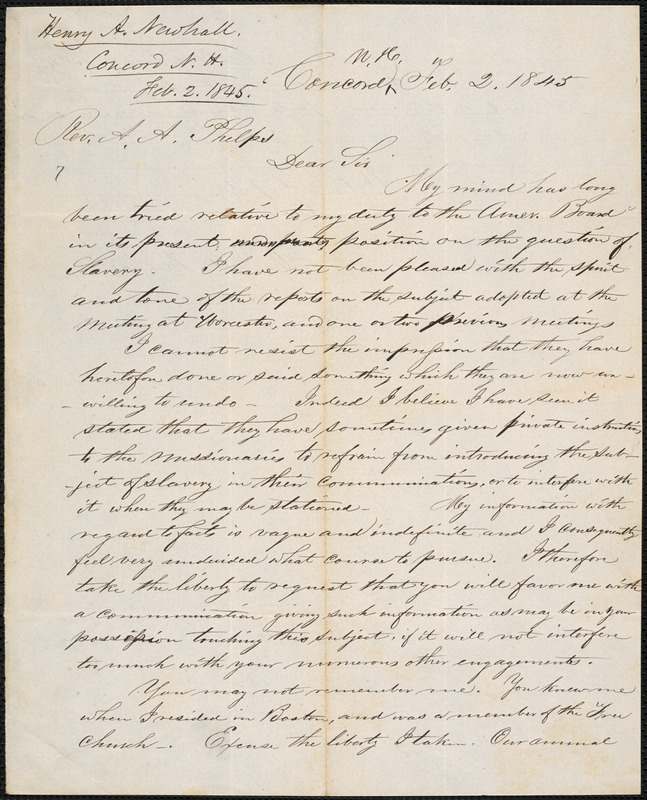 Henry A. Newhall.
Concord N. H.
Feb. 2. 1845.
N. H.
Concord, Feb. 2. 1845
Rev. A. A. Phelps
7
Dear Sir
My mind has long
been tried relative to my duty to the Amer. Board
in its present position on the question of
Slavery. I have not been pleased with the spirit
and tone of the reports on the subject adopted at the
meeting at Worcester, and one or two previous meetings
I cannot resist the impression that they have
heretofore done or said something which they are now un-
-willing to undo - Indeed I believe I have seen it
stated that they have sometimes given private instructions
to the missionaries to refrain from introducing the sub-
-ject of slavery in their communications, or to interfere with
it when they may be stationed - My information with
regard to facts is vague and indefinite and I consequently
feel very undecided what course to pursue. I therefore
take the liberty to request that you will favor me with
a communication giving such information as may be in your
possession touching this subject, if it will not interfere
too much with your numerous other engagements.
You may not remember me. You knew me
when I resided in Boston, and was a member of the Free
Church -. Excuse the liberty I take -. Our annual